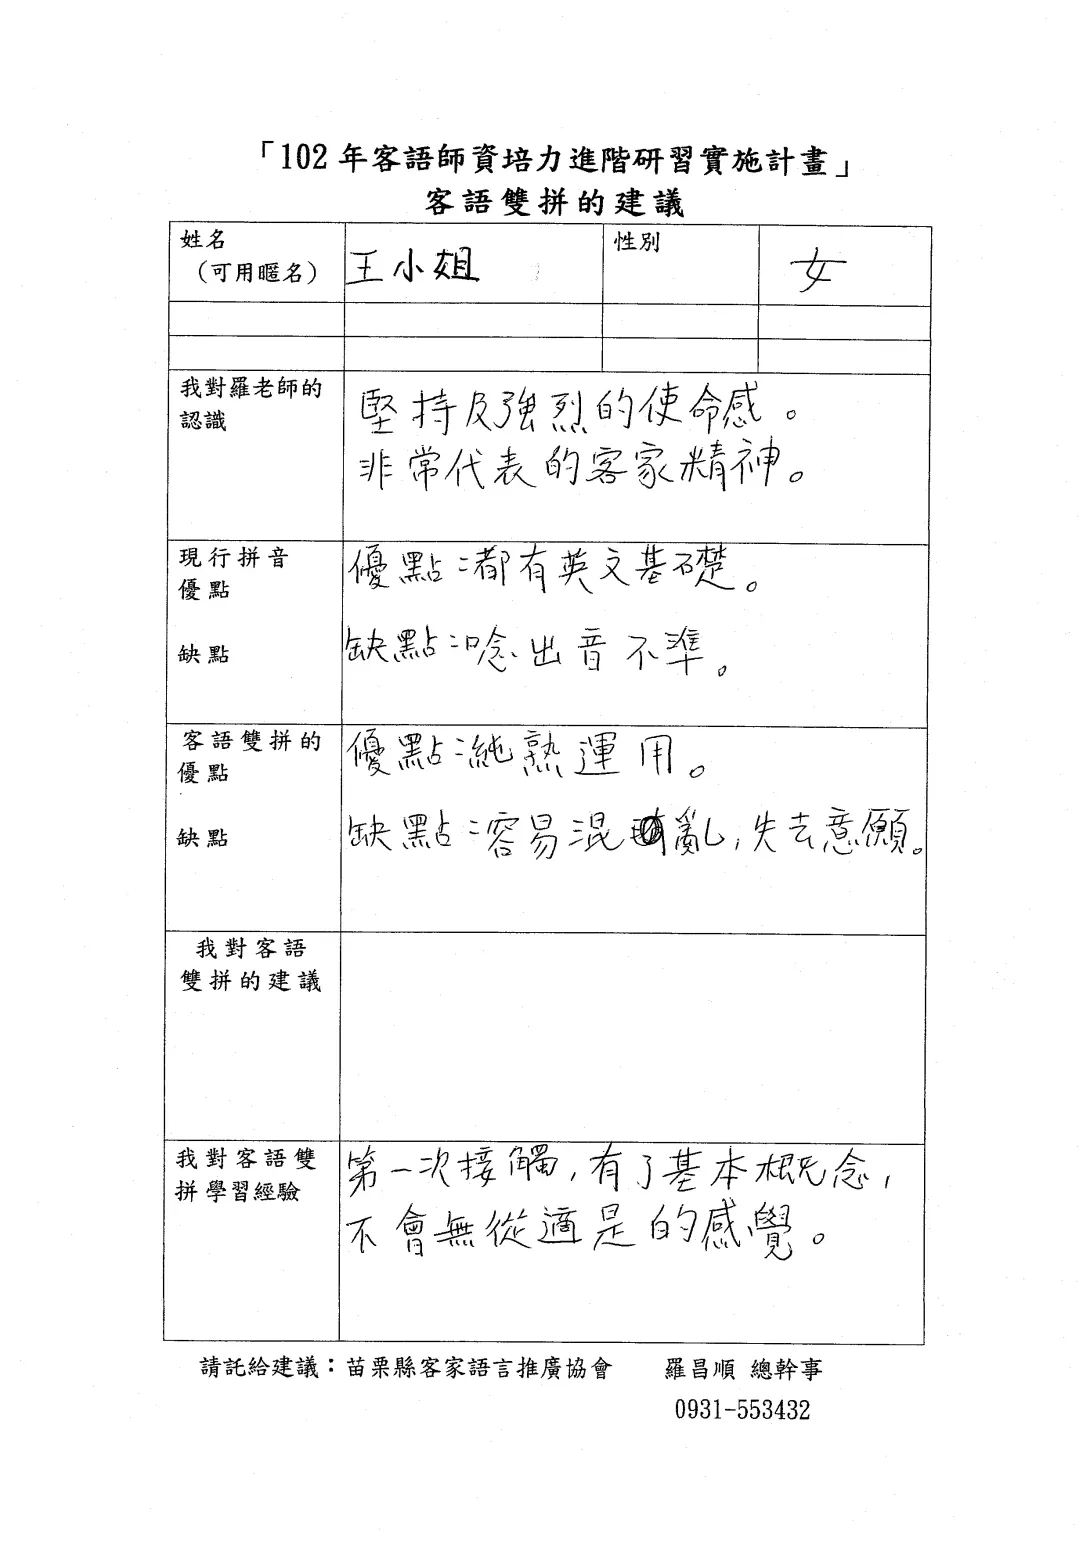 「102 年客語師資培力進階研習實施計畫」
客語雙拼的建議
姓名
（可用暱名）
王小姐
性別
女
我對羅老師的
認識
堅持及強烈的使命感。
非常代表的客家精神。
現行拼音
優點
缺點
優點：都有英文基礎。
缺點：唸出音不準。
客語雙拼的
優點
缺點
優點：純熟運用。
缺點：容易混亂，失去意願。
我對客語
雙拼的建議
我對客語雙
拼學習經驗
第一次接觸，有了基本概念，
不會無從適是的感覺。
請託給建議：苗栗縣客家語言推廣協會　羅昌順 總幹事
0931-553432